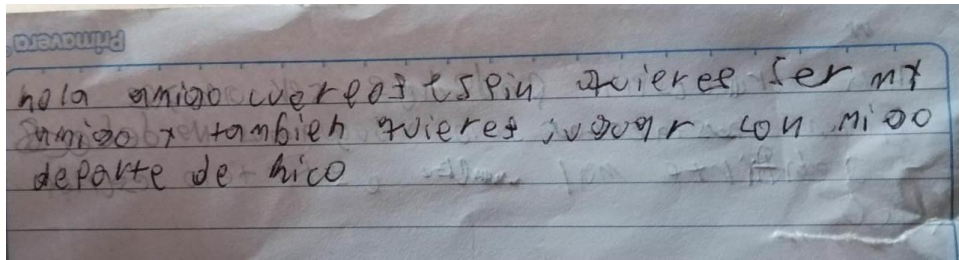 Primavera
hola amigo puerpos espin quieres ser my
amigo y tambien quieres jugugr con migo
departe de nico